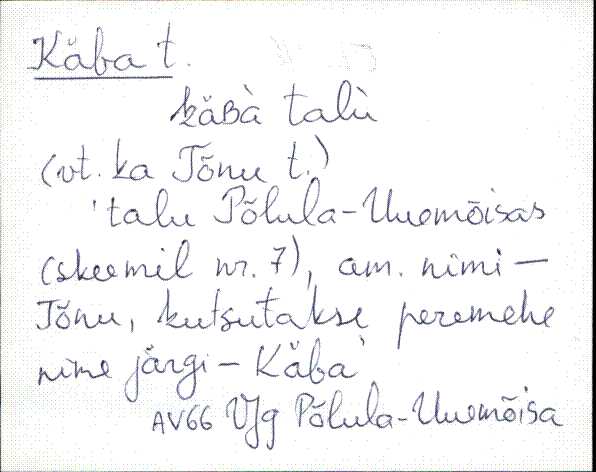 Käba t.
käBà talù
(vt. ka Tõnu t.)
'talu Põlula-Uuemõisas
(skeemil nr. 7), am. nimi –
Tõnu, kutsutakse peremehe
nime järgi – Käba'
AV66 VJg Põlula-Uuemõisa